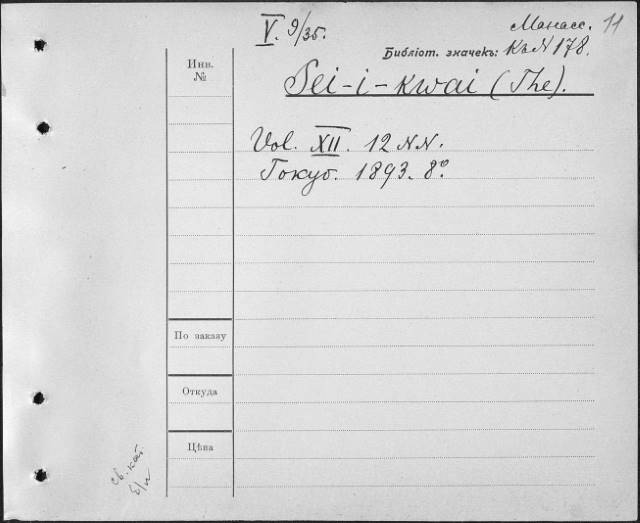 V. 9/35.
Манасс. 11
Библіот. значекъ: Къ N 178.
Инв. №
Sei-i-kwai (The).
Vol. XII. 12 NN.
Токуо. 1893. 8º.
По заказу
Откуда
Цѣна
св. кат.
б/н